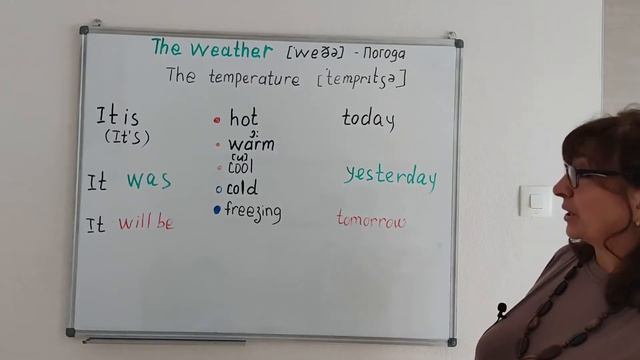 The weather [weðə] - Погода
The temperature [ˈtemprɪtʃə]
It is hot today
(It's)
ɔ:
warm
[u]
cool
It was yesterday
cold
It will be freezing tomorrow